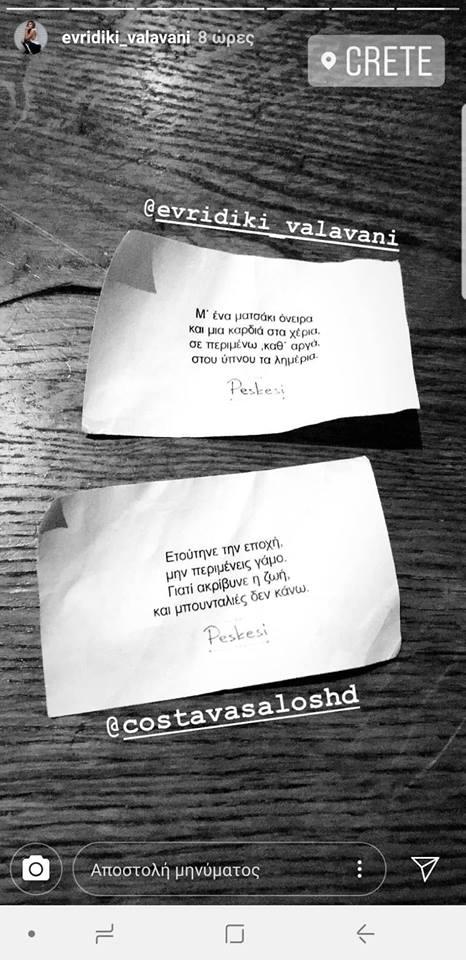 evridiki_valavani 8 ώρες
CRETE
@evridiki_valavani
Μ' ένα ματσάκι όνειρα
και μια καρδιά στα χέρια,
σε περιμένω ,καθ' αργά,
στου ύπνου τα λημέρια.
Peskesi
Ετούτηνε την εποχή,
μην περιμένεις γάμο.
Γιατί ακρίβυνε η ζωή,
και μπουνταλιές δεν κάνω.
Peskesi
@costavasaloshd
Αποστολή μηνύματος